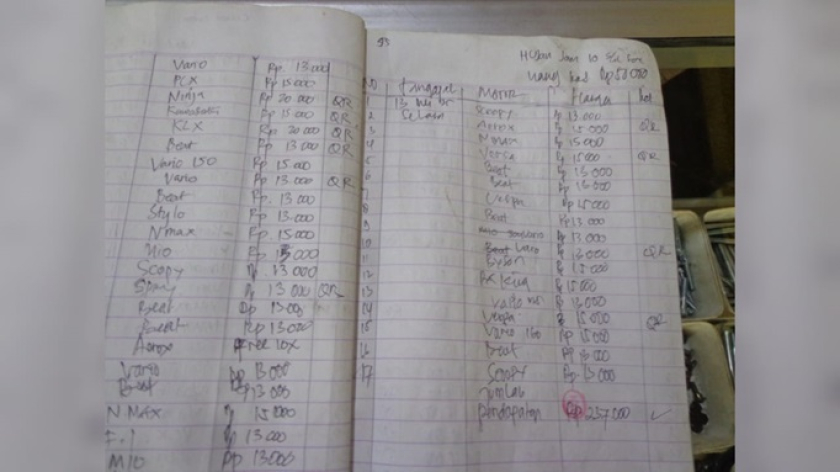 Vario Rp. 13.000
PCX Rp 15.000
Ninja Rp 20.000 QR
Kawasaki Rp 15.000 QR
KLX Rp 20.000 QR
Beat Rp 13.000 QR
Vario 150 Rp 15.000
Vario Rp 13.000 QR
Beat Rp. 13.000
Stylo Rp. 13.000
Nmax Rp. 15.000
Mio Rp. 13000
Scopy Rp. 13.000
Rp 13 000 QR
Beat Rp 13.000
Beat Rp 13.000
Aerox Free 10x
Vario Rp 13.000
Beat Rp 13.000
N MAX Rp 15000
F.1 Rp 13.000
MIO Rp 13000
93
Hujan Jam 10
uang kas Rp 50.000
NO Tanggal Motor Harga ket
1 13
2 Selasa Scopy Rp 13.000
3 Aerox Rp 15.000 QR
4 Nmax Rp 15.000
5 Rp 15000 QR
6 Beat Rp 13.000
7 Beat Rp 13.000
8 Vespa Rp 15000
9 Beat Rp 13.000
10 Rp 13.000
11 Vario Rp 13000 QR
12 Byson Rp 15.000
13 RX King Rp 15.000
14 Vario Rp 13.000
15 Vespa Rp 15.000 QR
16 Vario 160 Rp 15.000
17 Beat Rp 13.000
Scopy Rp. 13.000
Jumlah
pendapatan Rp 237.000